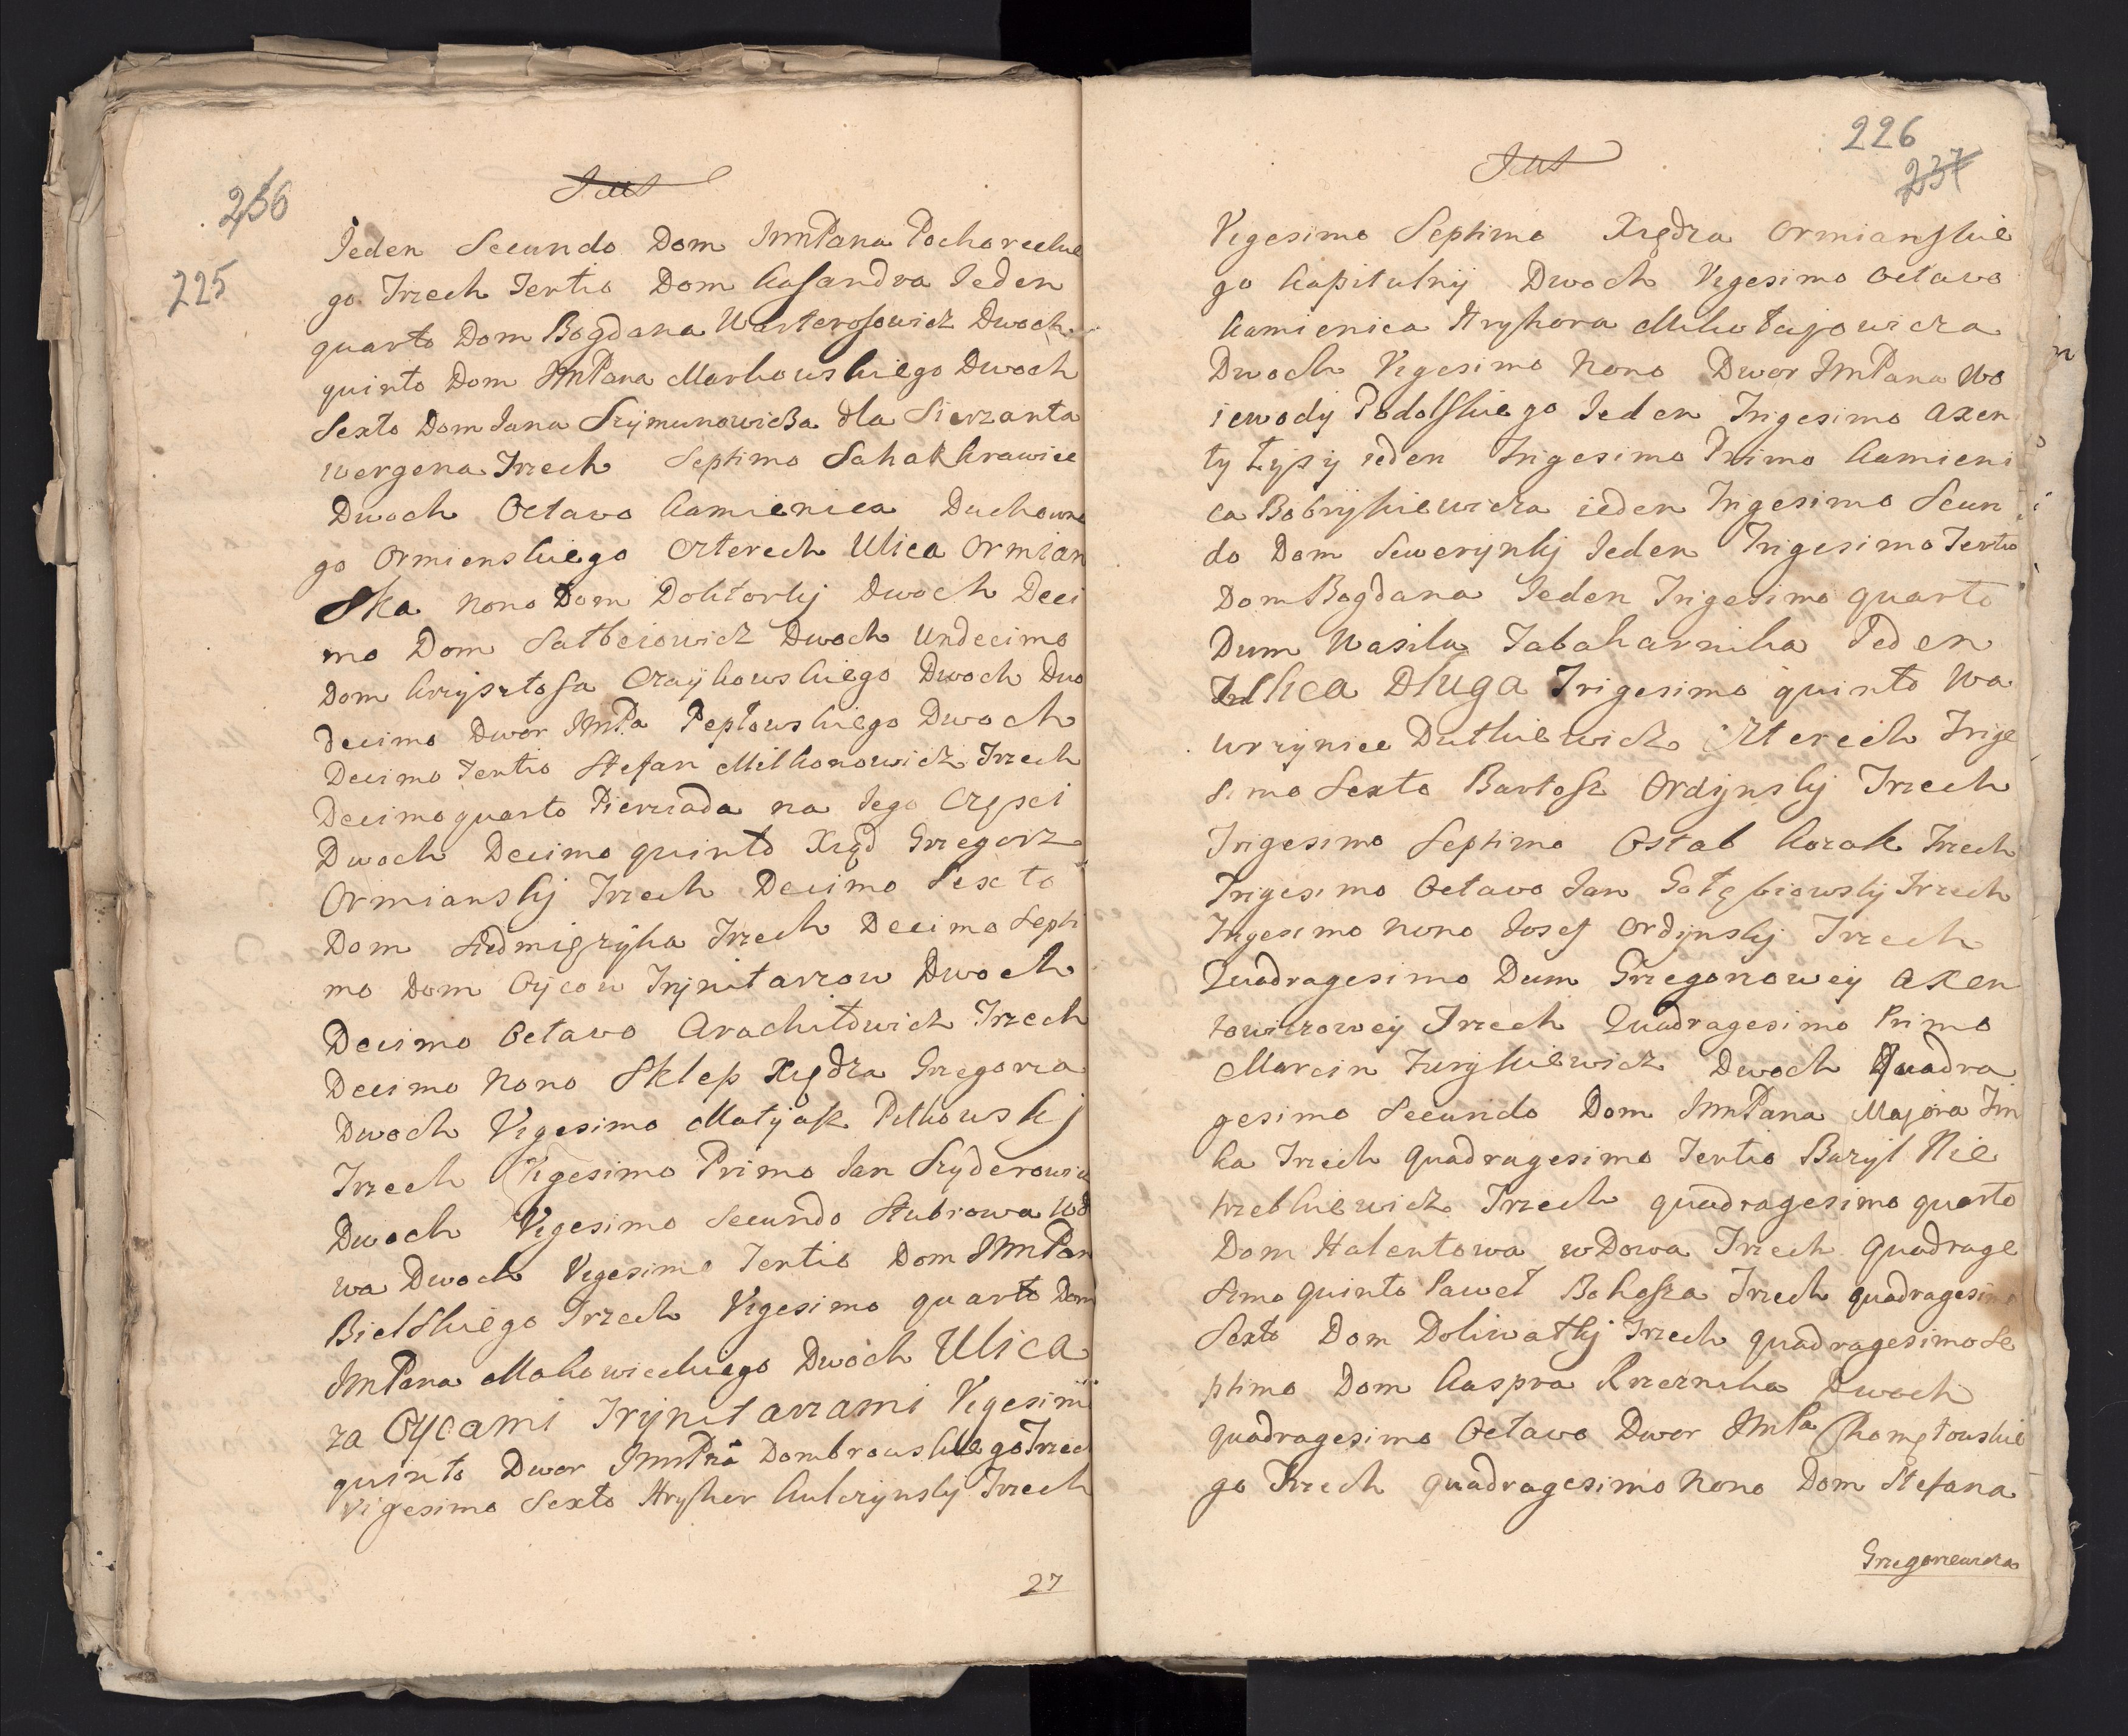 236
225
Jeden Secundo Dom ImPana Pochoreckie
go Trzech Tertio Dom Kasandra Jeden
quarto Dom Bogdana Warterosowicz Dwoch
quinto Dom ImPana Markowskiego Dwoch
Sexto Dom Jana Szymunowicza dla Sierzanta
wergena Trzech Septimo Sahak Krawiec
Dwoch Octavo Kamienica Duchowne
go Ormienskiego Czterech Ulica Ormian
Ska Nono Dom Doktorky Dwoch Deci
mo Dom Satbeiowicz Dwoch Undecimo
Dom Krzysztofa Czaykowskiego Dwoch Duo
decimo Dwor ImPa Peptowskiego Dwoch
Decimo Tertio Stefan Milkonowicz Trzech
Decimo quarto Pierzcada na Jego Częsci
Dwoch Decimo quinto Xiąd Grzegorz
Ormiansky Trzech Decimo Sexto
Dom Siedmigrzyka Trzech Decimo Septi
mo Dom Oycow Trynitarzow Dwoch
Decimo Octavo Arachitowicz Trzech
Decimo Nono Sklep Xiędza Grzegorza
Dwoch Vigesimo Matyask Pitkowskj
Trzech Vigesimo Primo Jan Szyderowic
Dwoch Vigesimo Secundo Stubrowa Wdo
wa Dwoch Vigesimo Tertio Dom ImPan
Bielskiego Trzech Vigesimo quarto Dom
ImPana Makowieckiego Dwoch Ulica
za Oycami Trynitarzami Vigesimo
quinto Dwor ImPna Dombrowskiego Trzech
Vigesimo Sexto Hryhor Kulczynsky Trzech
27
226
237
Vigesimo Septimo Xiędza Ormianskie
go Kapitulny Dwoch Vigesimo Octavo
Kamienica Hryhora Mikołajowicza
Dwoch Vigesimo Nono Dwor ImPana Wo
iewody Podolskiego Jeden Trigesimo Axen
ty Łysy ieden Trigesimo Primo Kamieni
ca Bobrykiewicza ieden Trigesimo Secun
do Dom Sewerynky Jeden Trigesimo Tertio
Dom Bogdana Jeden Trigesimo quarto
Dum Wasila Tabakarnika Jeden
Ulica Dluga Trigesimo quinto Wa
wrzyniec Dutkiewicz Czterech Trige
simo Sexto Bartosz Ordynsky Trzech
Trigesimo Septimo Ostab Kozak Trzech
Trigesimo Octavo Jan Gołębiowsky Trzech
Trigesimo Nono Josef Ordynsky Trzech
Quadragesimo Dum Grzegorzowey Axen
towiczowey Trzech Quadragesimo Primo
Marcin Jurykiewicz Dwoch Quadra
gesimo Secundo Dom ImPana Majora Jun
ka Trzech quadragesimo Tertio Bazyl Nie
trzebkiewicz Trzech quadragesimo quarto
Dom Halentowa wdowa Trzech Quadrage
simo quinto Paweł Bohasza Trzech quadragesimo
Sexto Dom Doliwatky Trzech quadragesimo Se
ptimo Dom Kaspra Rzeznika Dwoch
quadragesimo Octavo Dwor ImPa Chomętowskie
go Trzech quadragesimo Nono Dom Stefana
Grzegorzewicza